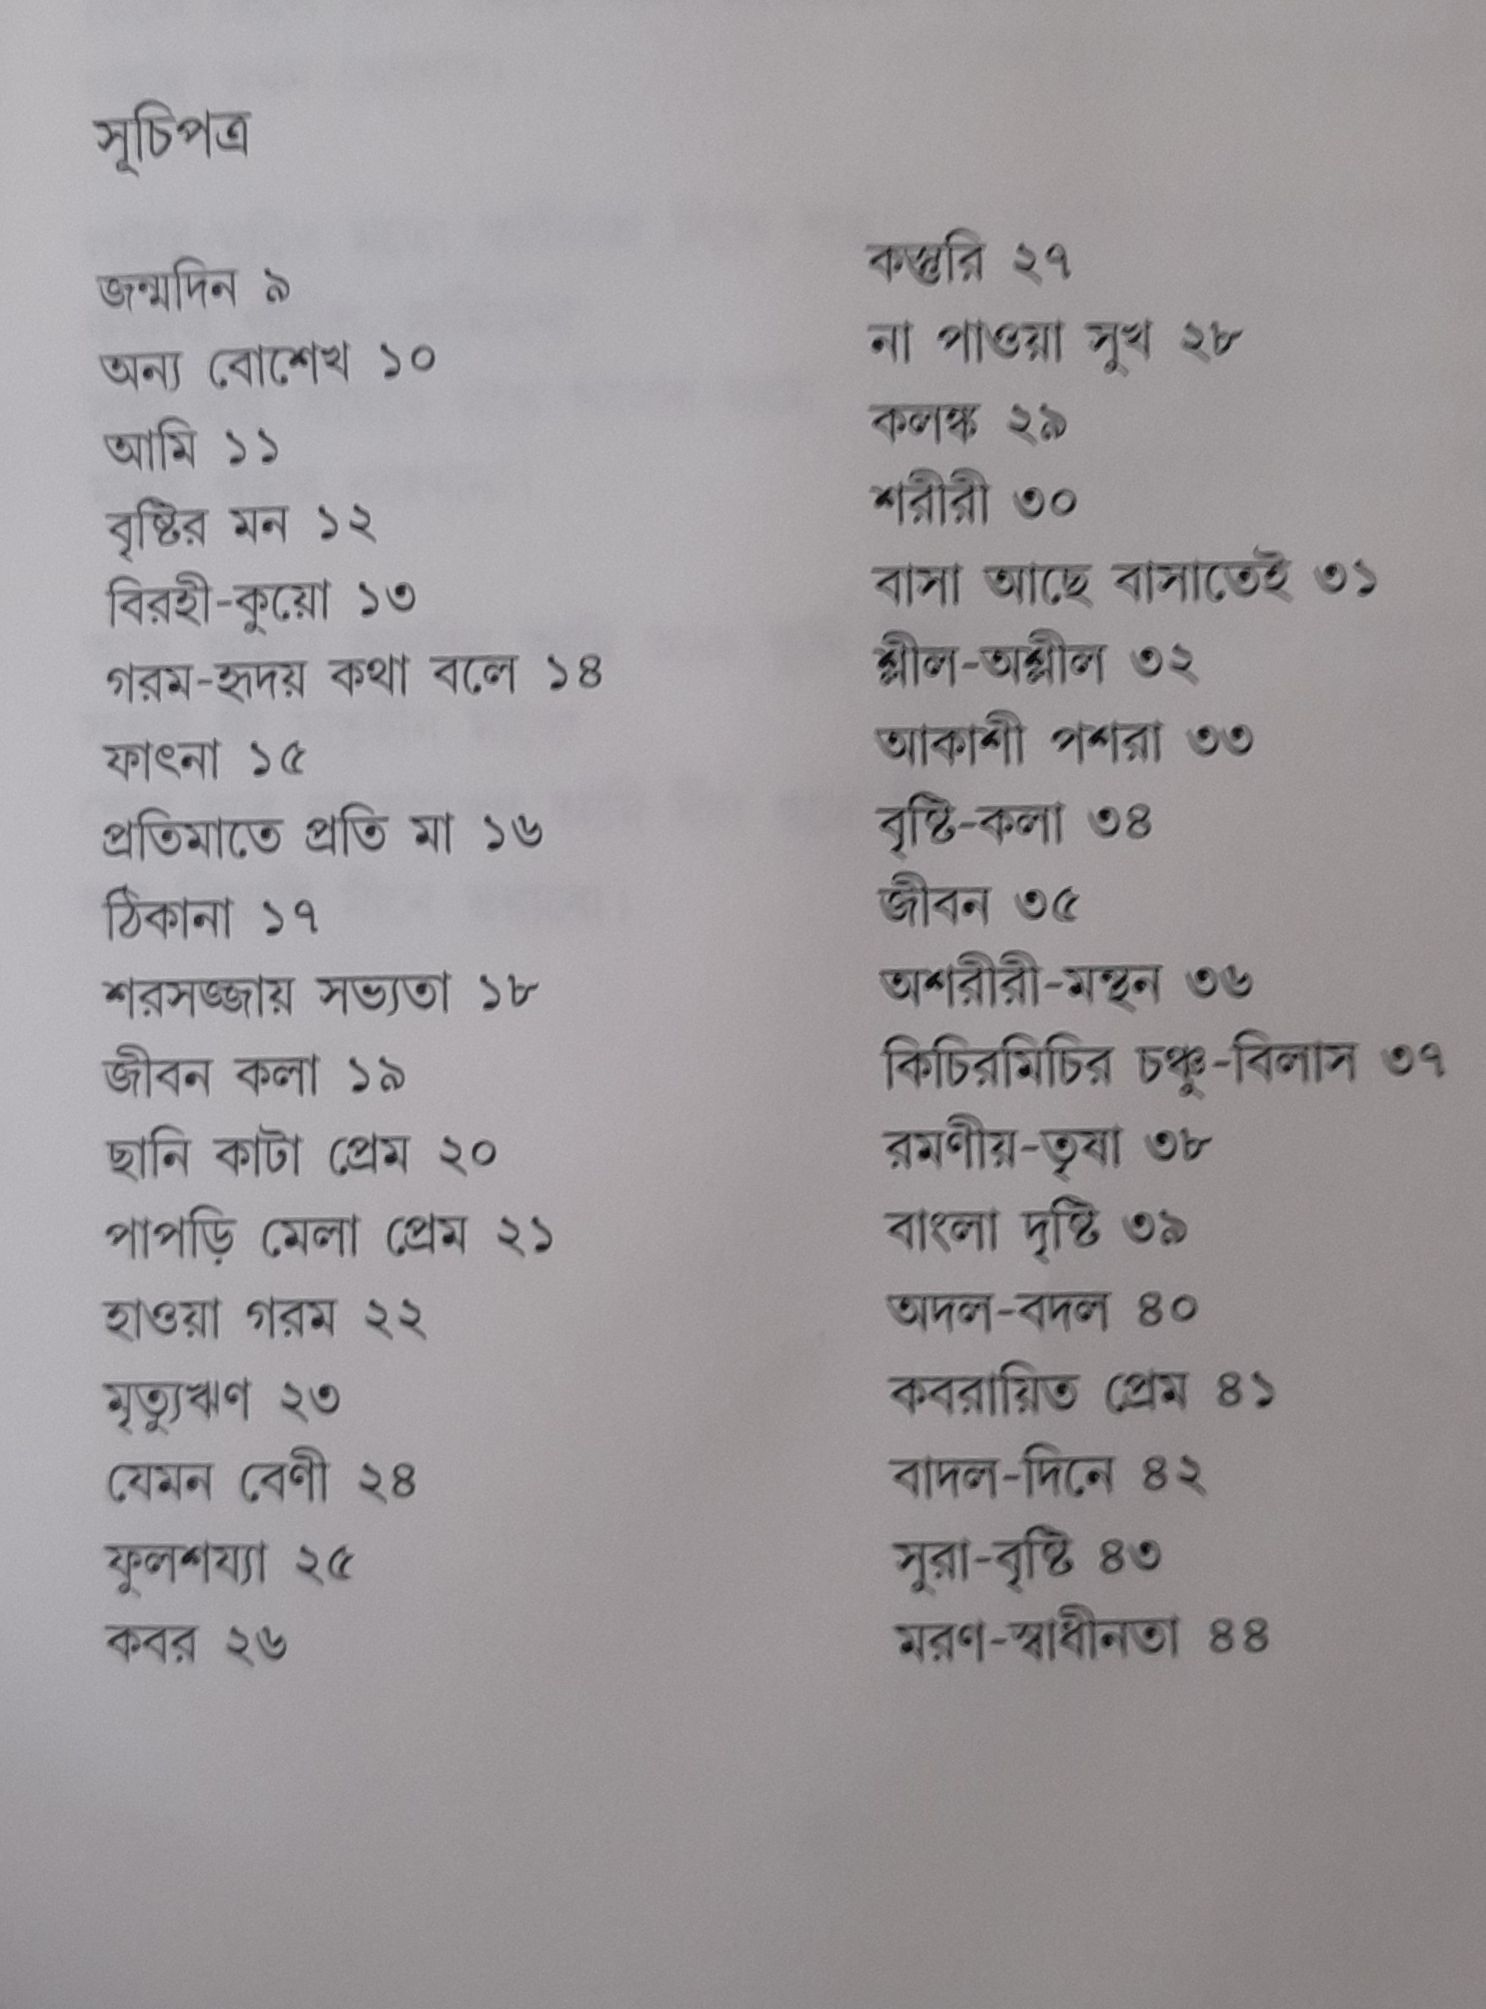 সূচিপত্র
জন্মদিন ৯
অন্য বোশেখ ১০
আমি ১১
বৃষ্টির মন ১২
বিরহী-কুয়ো ১৩
গরম-হৃদয় কথা বলে ১৪
ফাৎনা ১৫
প্রতিমাতে প্রতি মা ১৬
ঠিকানা ১৭
শরসজ্জায় সভ্যতা ১৮
জীবন কলা ১৯
ছানি কাটা প্রেম ২০
পাপড়ি মেলা প্রেম ২১
হাওয়া গরম ২২
মৃত্যুঋণ ২৩
যেমন বেণী ২৪
ফুলশয্যা ২৫
কবর ২৬
কস্তুরি ২৭
না পাওয়া সুখ ২৮
কলঙ্ক ২৯
শরীরী ৩০
বাসা আছে বাসাতেই ৩১
শ্লীল-অশ্লীল ৩২
আকাশী পশরা ৩৩
বৃষ্টি-কলা ৩৪
জীবন ৩৫
অশরীরী-মন্থন ৩৬
কিচিরমিচির চঞ্চু-বিলাস ৩৭
রমণীয়-তৃষা ৩৮
বাংলা দৃষ্টি ৩৯
অদল-বদল ৪০
কবরায়িত প্রেম ৪১
বাদল-দিনে ৪২
সুরা-বৃষ্টি ৪৩
মরণ-স্বাধীনতা ৪৪